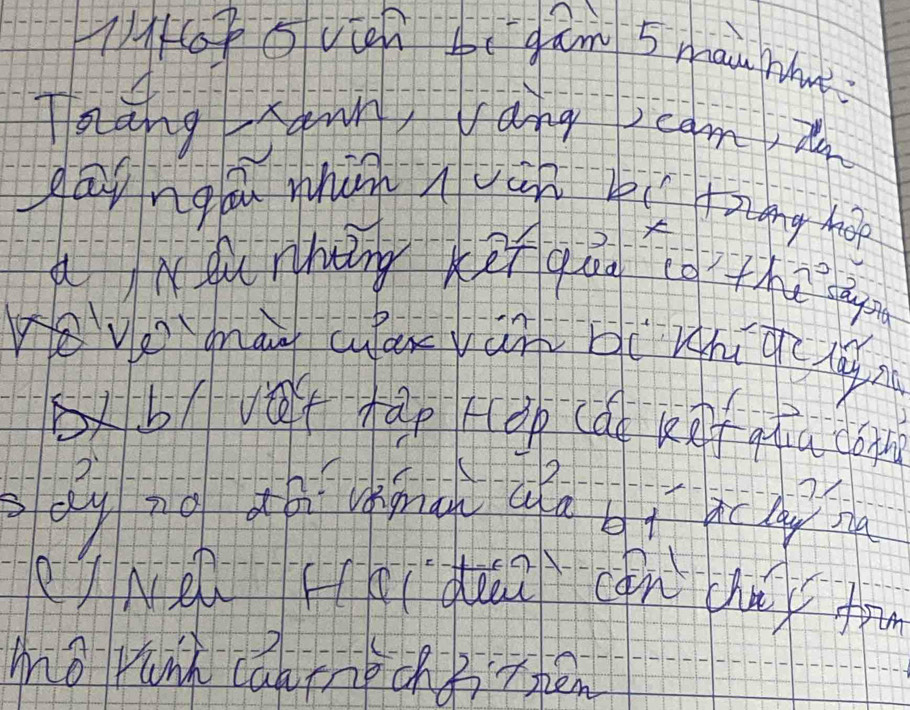 1) 1 Hộp 5 viên bi gồm 5 màu như:
Trắng, xanh, vàng, cam, đen
Lấy ngẫu nhiên 1 viên bi trong hộp
a, Nêu những kết quả có thể sảy ra
về màu của viên bi khi đc lấy ra
b/ viết tập Hợp các kết quả có thể
sảy ra đối với màu của bi đc lấy ra
c) Nêu Hai điều cần chú ý trong
mô hình của trò chơi trên